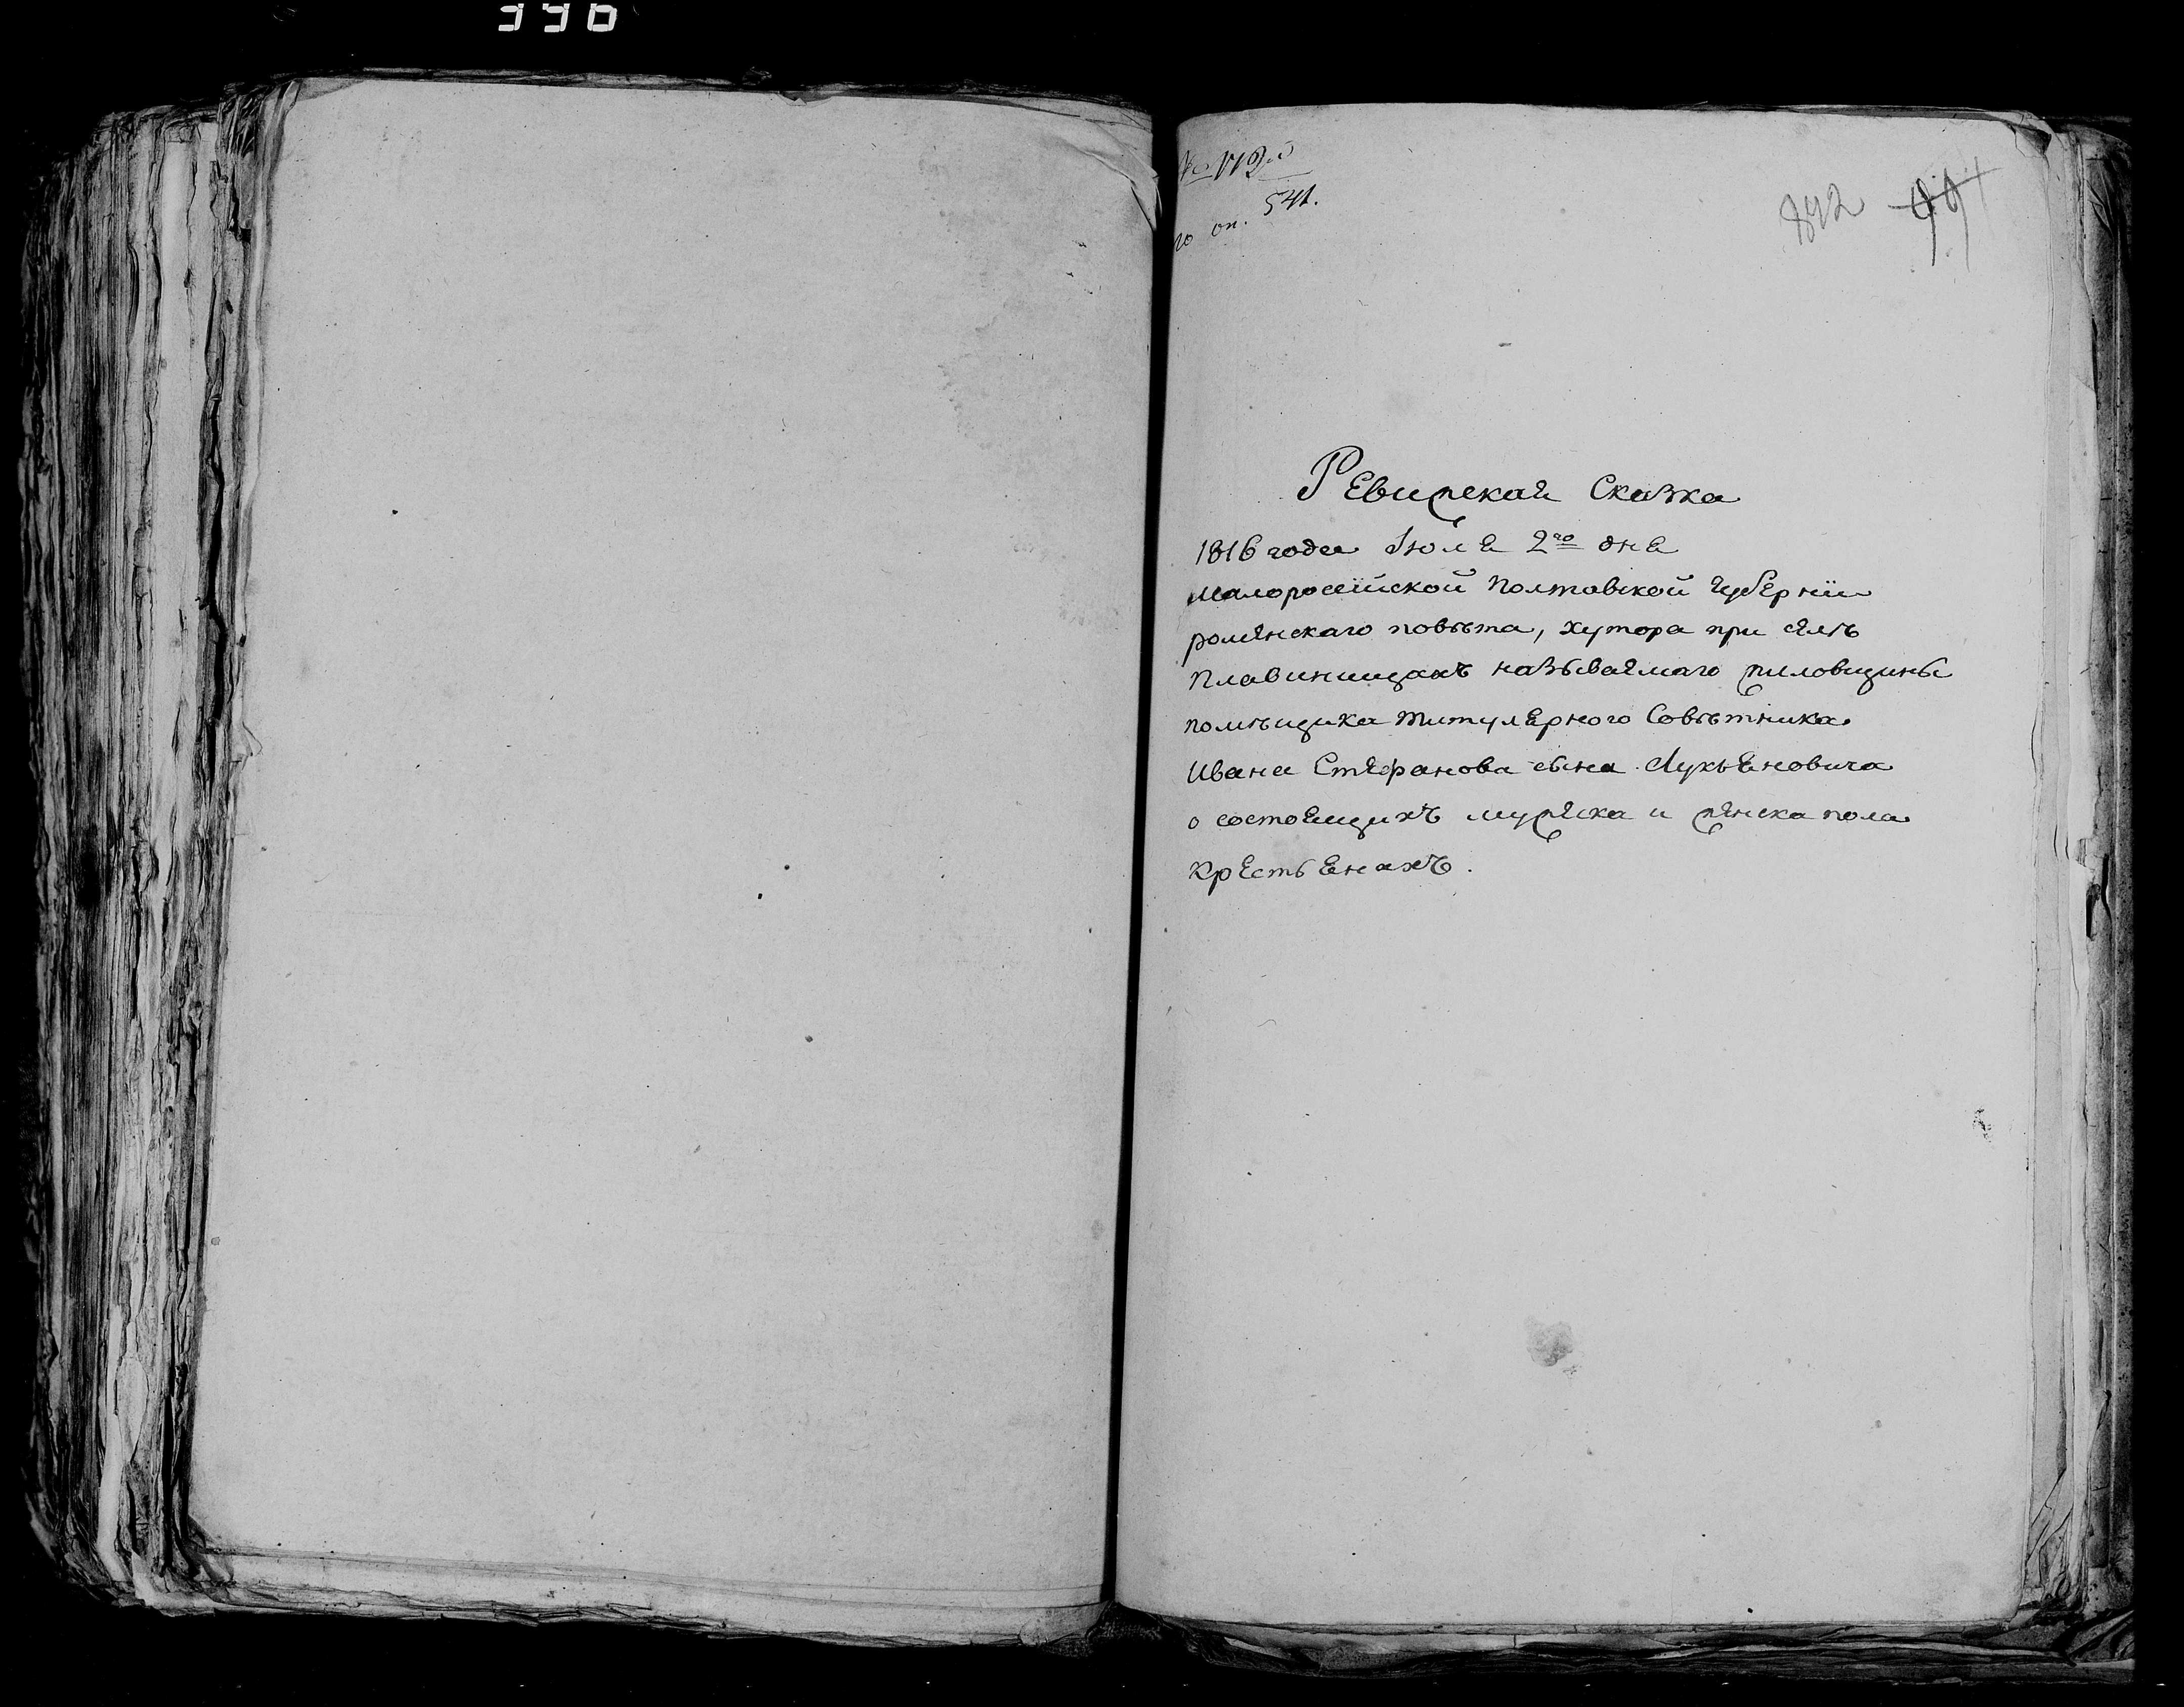 по оп. 541.
842 99
Ревизская Сказка
1816 года Іюля 2го дня
малоросѣйской Полтавской губерніи
роменскаго повѣта, хутора при селѣ
Плавинищахъ называемаго
помѣщика титулярного Совѣтника
Ивана Стефанова сына Лукьяновича
о состоящихъ мужеска и женска пола
крестьянахъ.